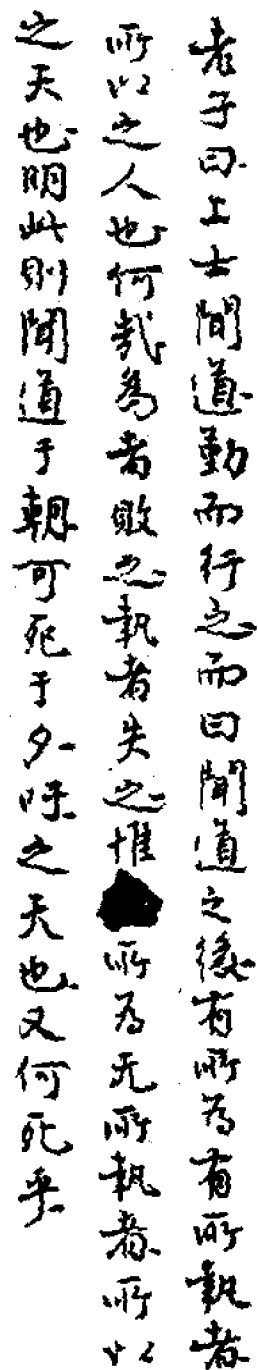 老子曰上士聞道勤而行之而曰聞道之後有所為有所執者
所以之人也何哉為者敗之執者失之惟所為无所執者所以
之天也明此則聞道于朝可死于夕呼之天也又何死乎